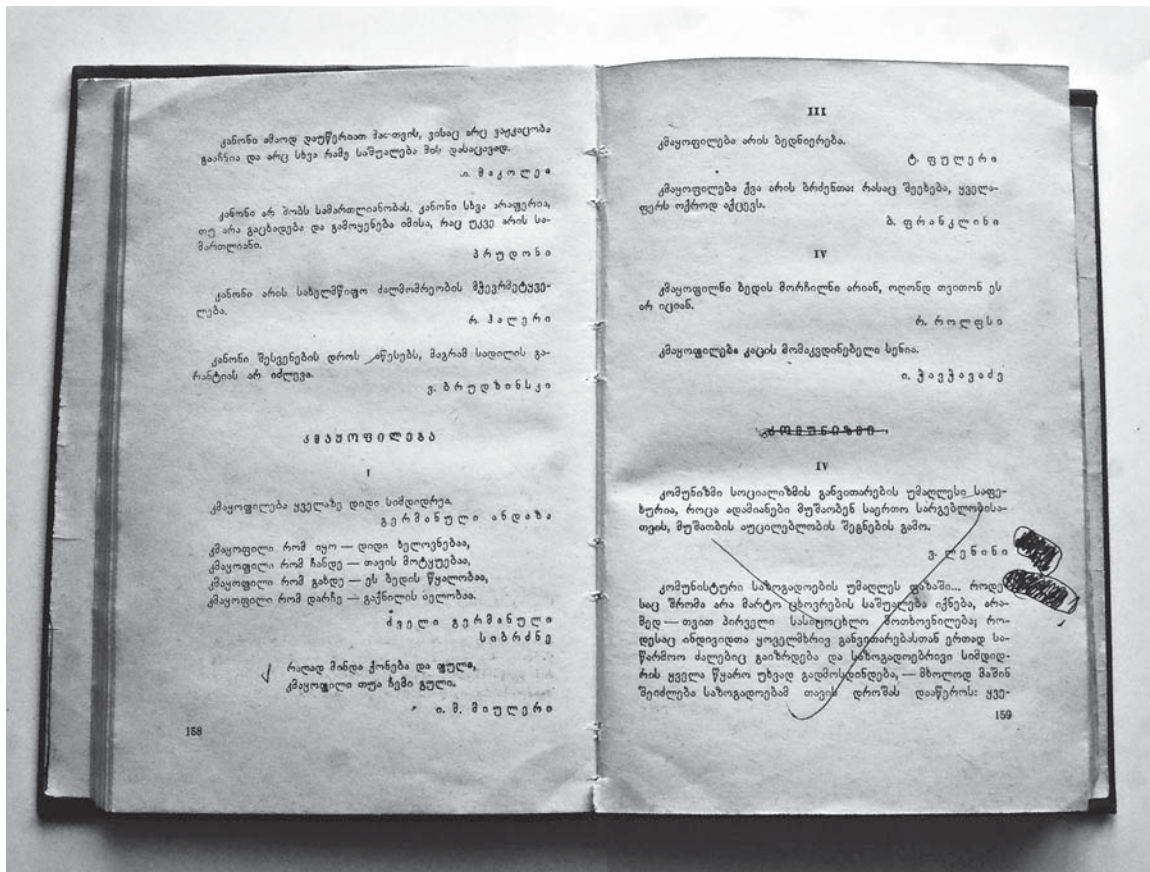 კანონი ამაოდ დაუწერიათ მათთვის, ვისაც არც ვაჟკაცობა
გააჩნია და არც სხვა რამე საშუალება მის დასაცავად.
მაკოლეი
კანონი არ შობს სამართლიანობას, კანონი სხვა არაფერია,
თუ არა გაცხადება და გამოყენება იმისა, რაც უკვე არის სა-
მართლიანი.
პრუდონი
კანონი არის სახელმწიფო ძალმომრეობის მჭევრმეტყვე-
ლება.
რ. ჰალერი
კანონი შესვენების დროს აწესებს, მაგრამ სადილის გა-
რანტიას არ იძლევა.
ვ. ბრუდზინსკი
ᲙᲛᲐᲧᲝᲤᲘᲚᲔᲑᲐ
I
კმაყოფილება ყველაზე დიდი სიმდიდრეა.
გერმანული ანდაზა
კმაყოფილი რომ იყო — დიდი ხელოვნებაა,
კმაყოფილი რომ ჩანდე — თავის მოტყუებაა,
კმაყოფილი რომ გახდე — ეს ბედის წყალობაა,
კმაყოფილი რომ დარჩე — გაქნილის ხელობაა.
ძველი გერმანული
სიბრძნე
რაღად მინდა ქონება და ფული,
კმაყოფილი თუა ჩემი გული.
ი. მ. მიულერი
158
III
კმაყოფილება არის ბედნიერება.
ტ. ფულერი
კმაყოფილება ქვა არის ბრძენთა: რასაც შეეხება, ყველა-
ფერს ოქროდ აქცევს.
ბ. ფრანკლინი
IV
კმაყოფილნი ბედის მორჩილნი არიან, ოღონდ თვითონ ეს
არ იციან.
რ. როლფსი
კმაყოფილება კაცის მომაკვდინებელი სენია.
ი. ჭავჭავაძე
ᲙᲝᲛᲣᲜᲘᲖᲛᲘ
IV
კომუნიზმი სოციალიზმის განვითარების უმაღლესი საფე-
ხურია, როცა ადამიანები მუშაობენ საერთო სარგებლობისა-
თვის, მუშაობის აუცილებლობის შეგნების გამო.
ვ. ლენინი
კომუნისტური საზოგადოების უმაღლეს ფაზაში... როდე-
საც შრომა არა მარტო ცხოვრების საშუალება იქნება, არა-
მედ — თვით პირველი სასიცოცხლო მოთხოვნილება; რო-
დესაც ინდივიდთა ყოველმხრივ განვითარებასთან ერთად სა-
წარმოო ძალებიც გაიზრდება და საზოგადოებრივი სიმდიდ-
რის ყველა წყარო უხვად გადმოსდინდება, — მხოლოდ მაშინ
შეიძლება საზოგადოებამ თავის დროშას დააწეროს: ყვე-
159